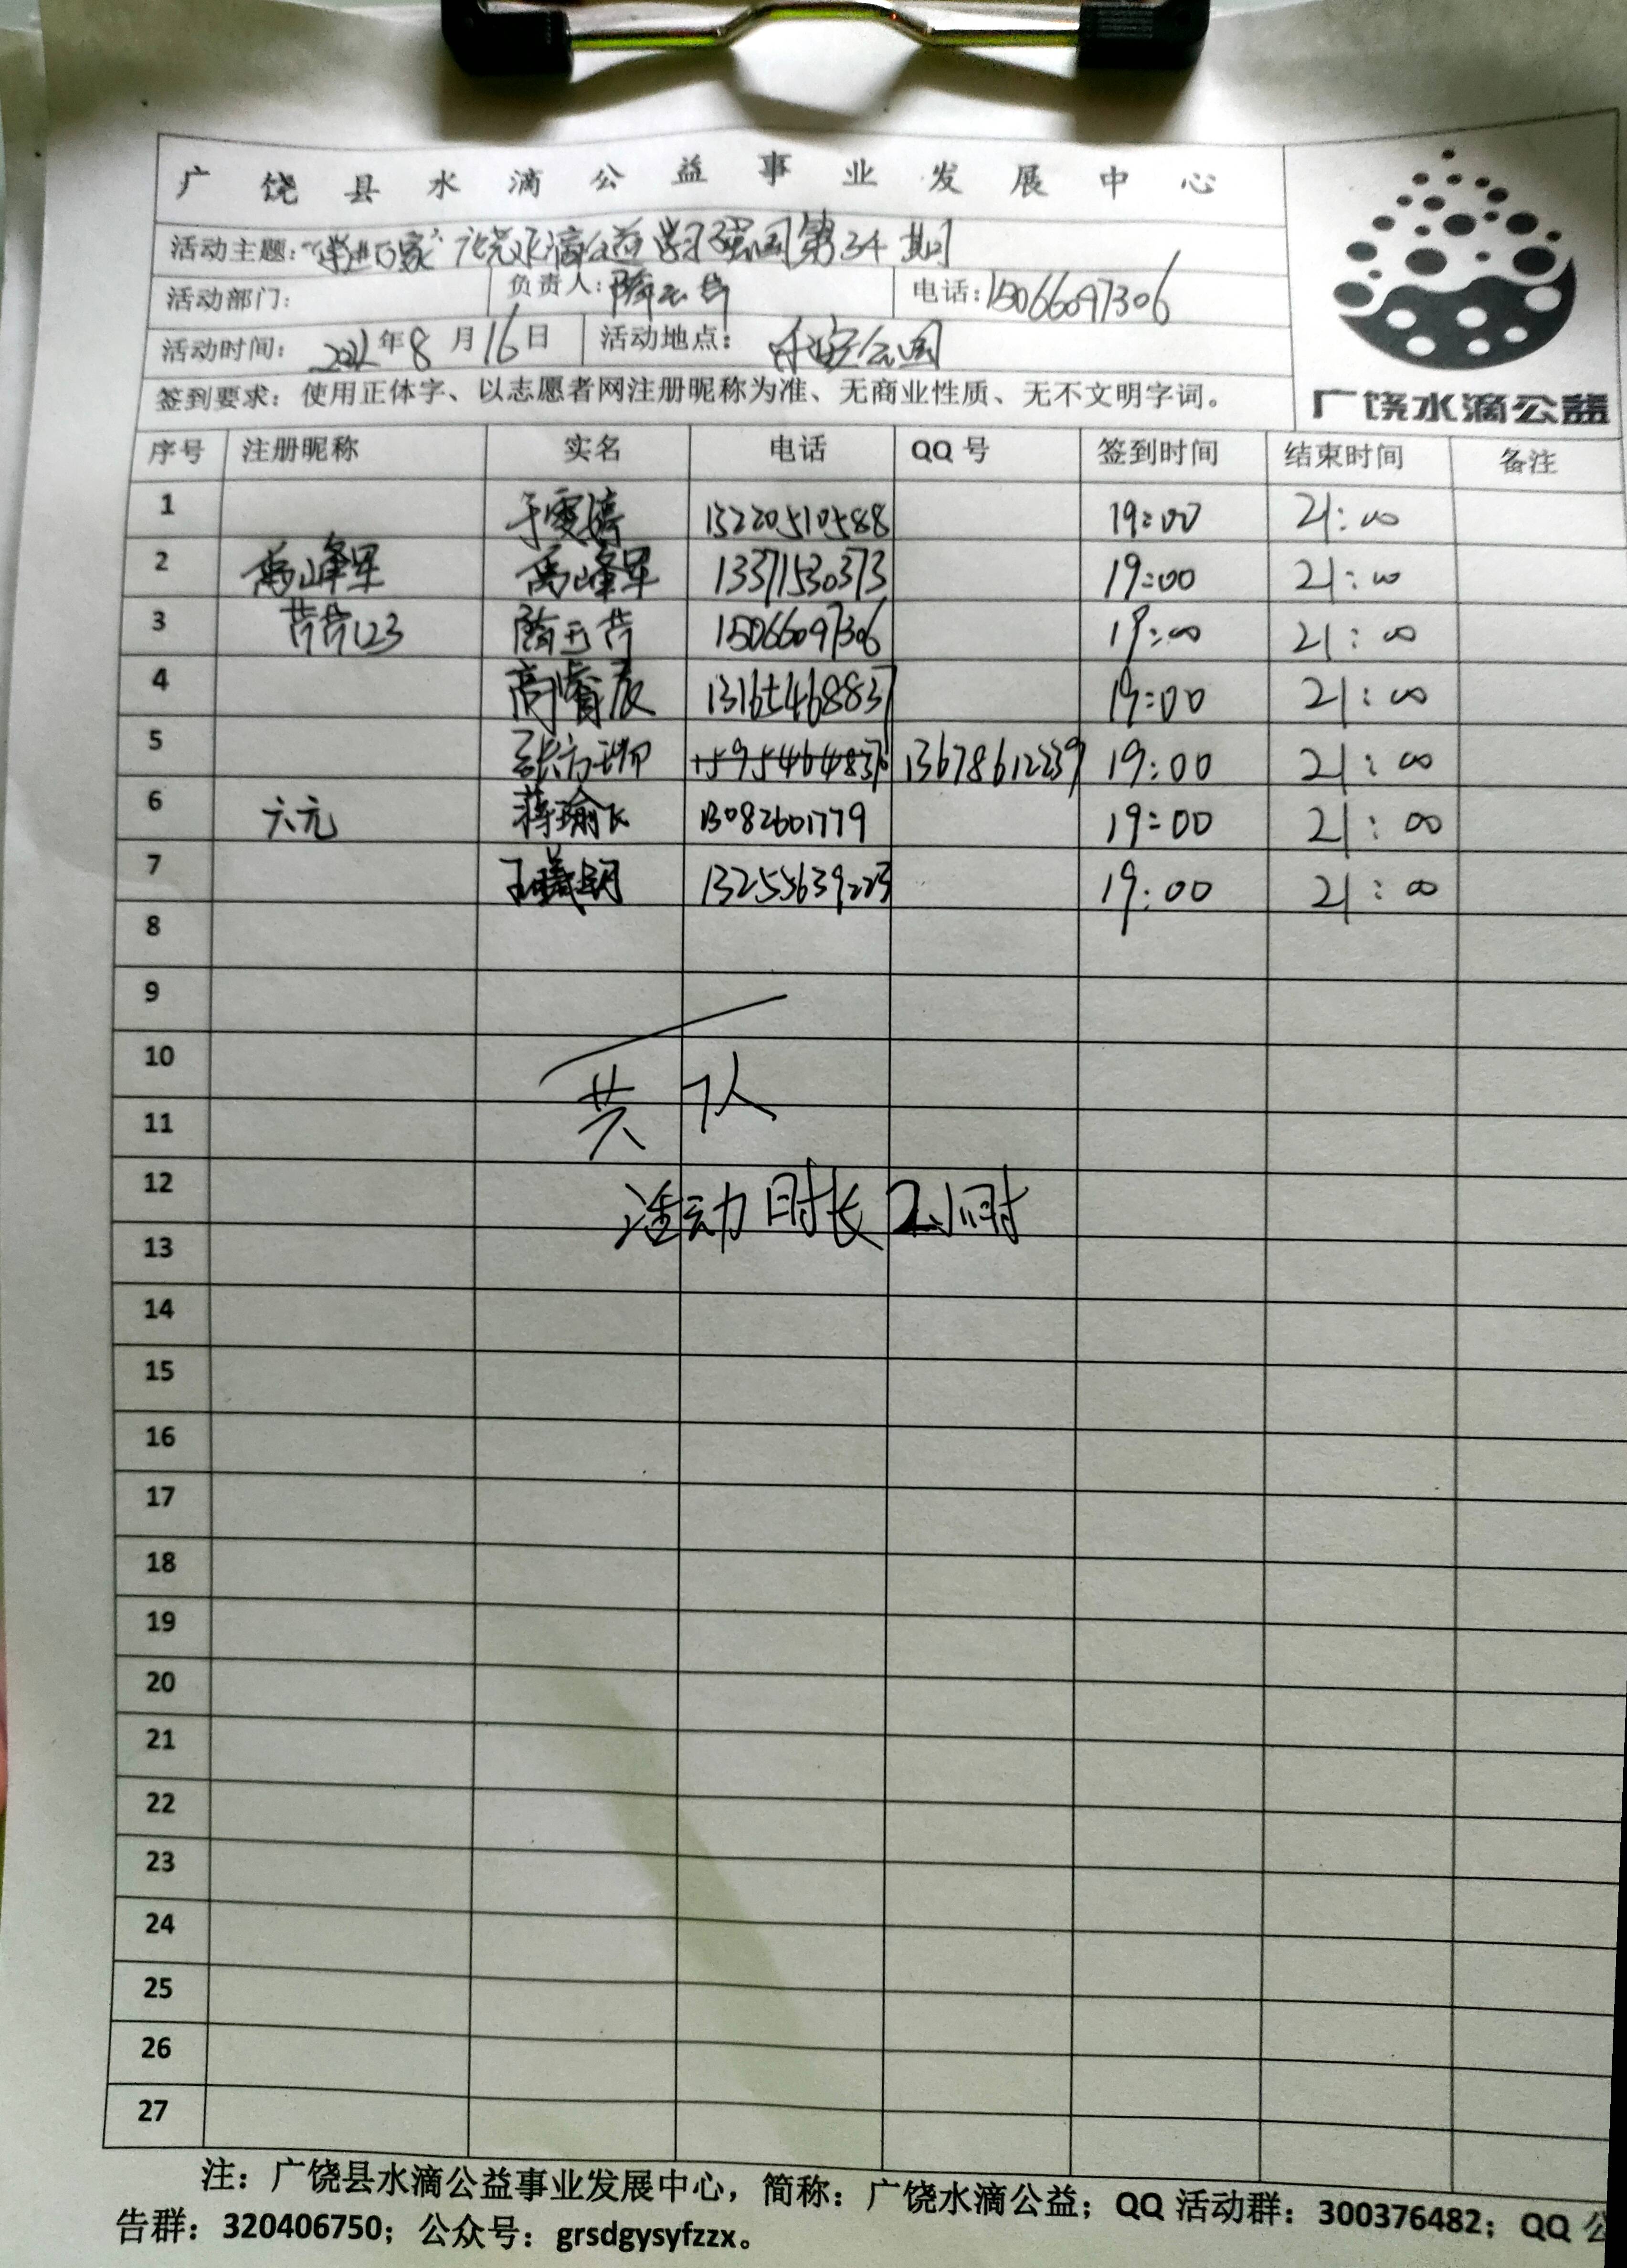 广饶县水滴公益事业发展中心
活动主题:“学进百家”广饶水滴公益学习强国第34期
活动部门: 负责人: 电话:15066097306
活动时间: 2022年8月16日 活动地点: 公园
签到要求:使用正体字、以志愿者网注册昵称为准、无商业性质、无不文明字词。
广饶水滴公益
序号 注册昵称 实名 电话 QQ号 签到时间 结束时间 备注
1 于雯婷 13220510588 19:00 21:00
2 禹峰军 禹峰军 13371530373 19:00 21:00
3 芹芹123 隋玉芹 15066097306 19:00 21:00
4 高睿辰 13165468837 19:00 21:00
5 13678612239 19:00 21:00
6 六元 蒋瑜飞 13082601779 19:00 21:00
7 13255639223 19:00 21:00
8
9
10
共7人
11
12
活动时长2小时
13
14
15
16
17
18
19
20
21
22
23
24
25
26
27
注:广饶县水滴公益事业发展中心,简称:广饶水滴公益;QQ 活动群:300376482;QQ 公
告群:320406750;公众号:grsdgysyfzzx。